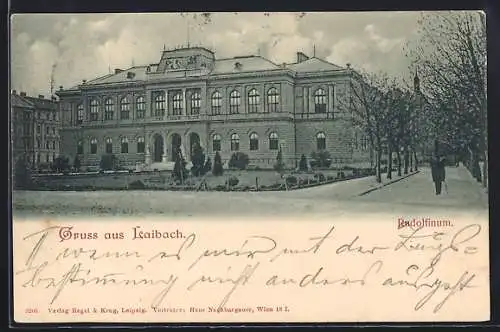 Gruss aus Laibach.
Rudolfinum.
wenn es mir mit der Zugs-
bestimmung nicht anders ausgeht
3216. Verlag Regel & Krug, Leipzig. Vertreter: Hans Nachbargauer, Wien 18 I.